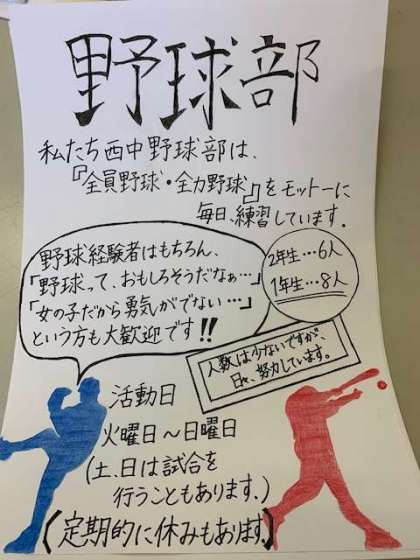 野球部
私たち西中野球部は、
『全員野球・全力野球』をモットーに
毎日、練習しています。
野球経験者はもちろん、
「野球って、おもしろそうだなぁ…」
「女の子だから勇気がでない…」
という方も大歓迎です!!
2年生…6人
1年生…8人
人数は少ないですが、
日々、努力しています。
活動日
火曜日～日曜日
(土、日は試合を
行うこともあります。)
(定期的に休みもあります。)